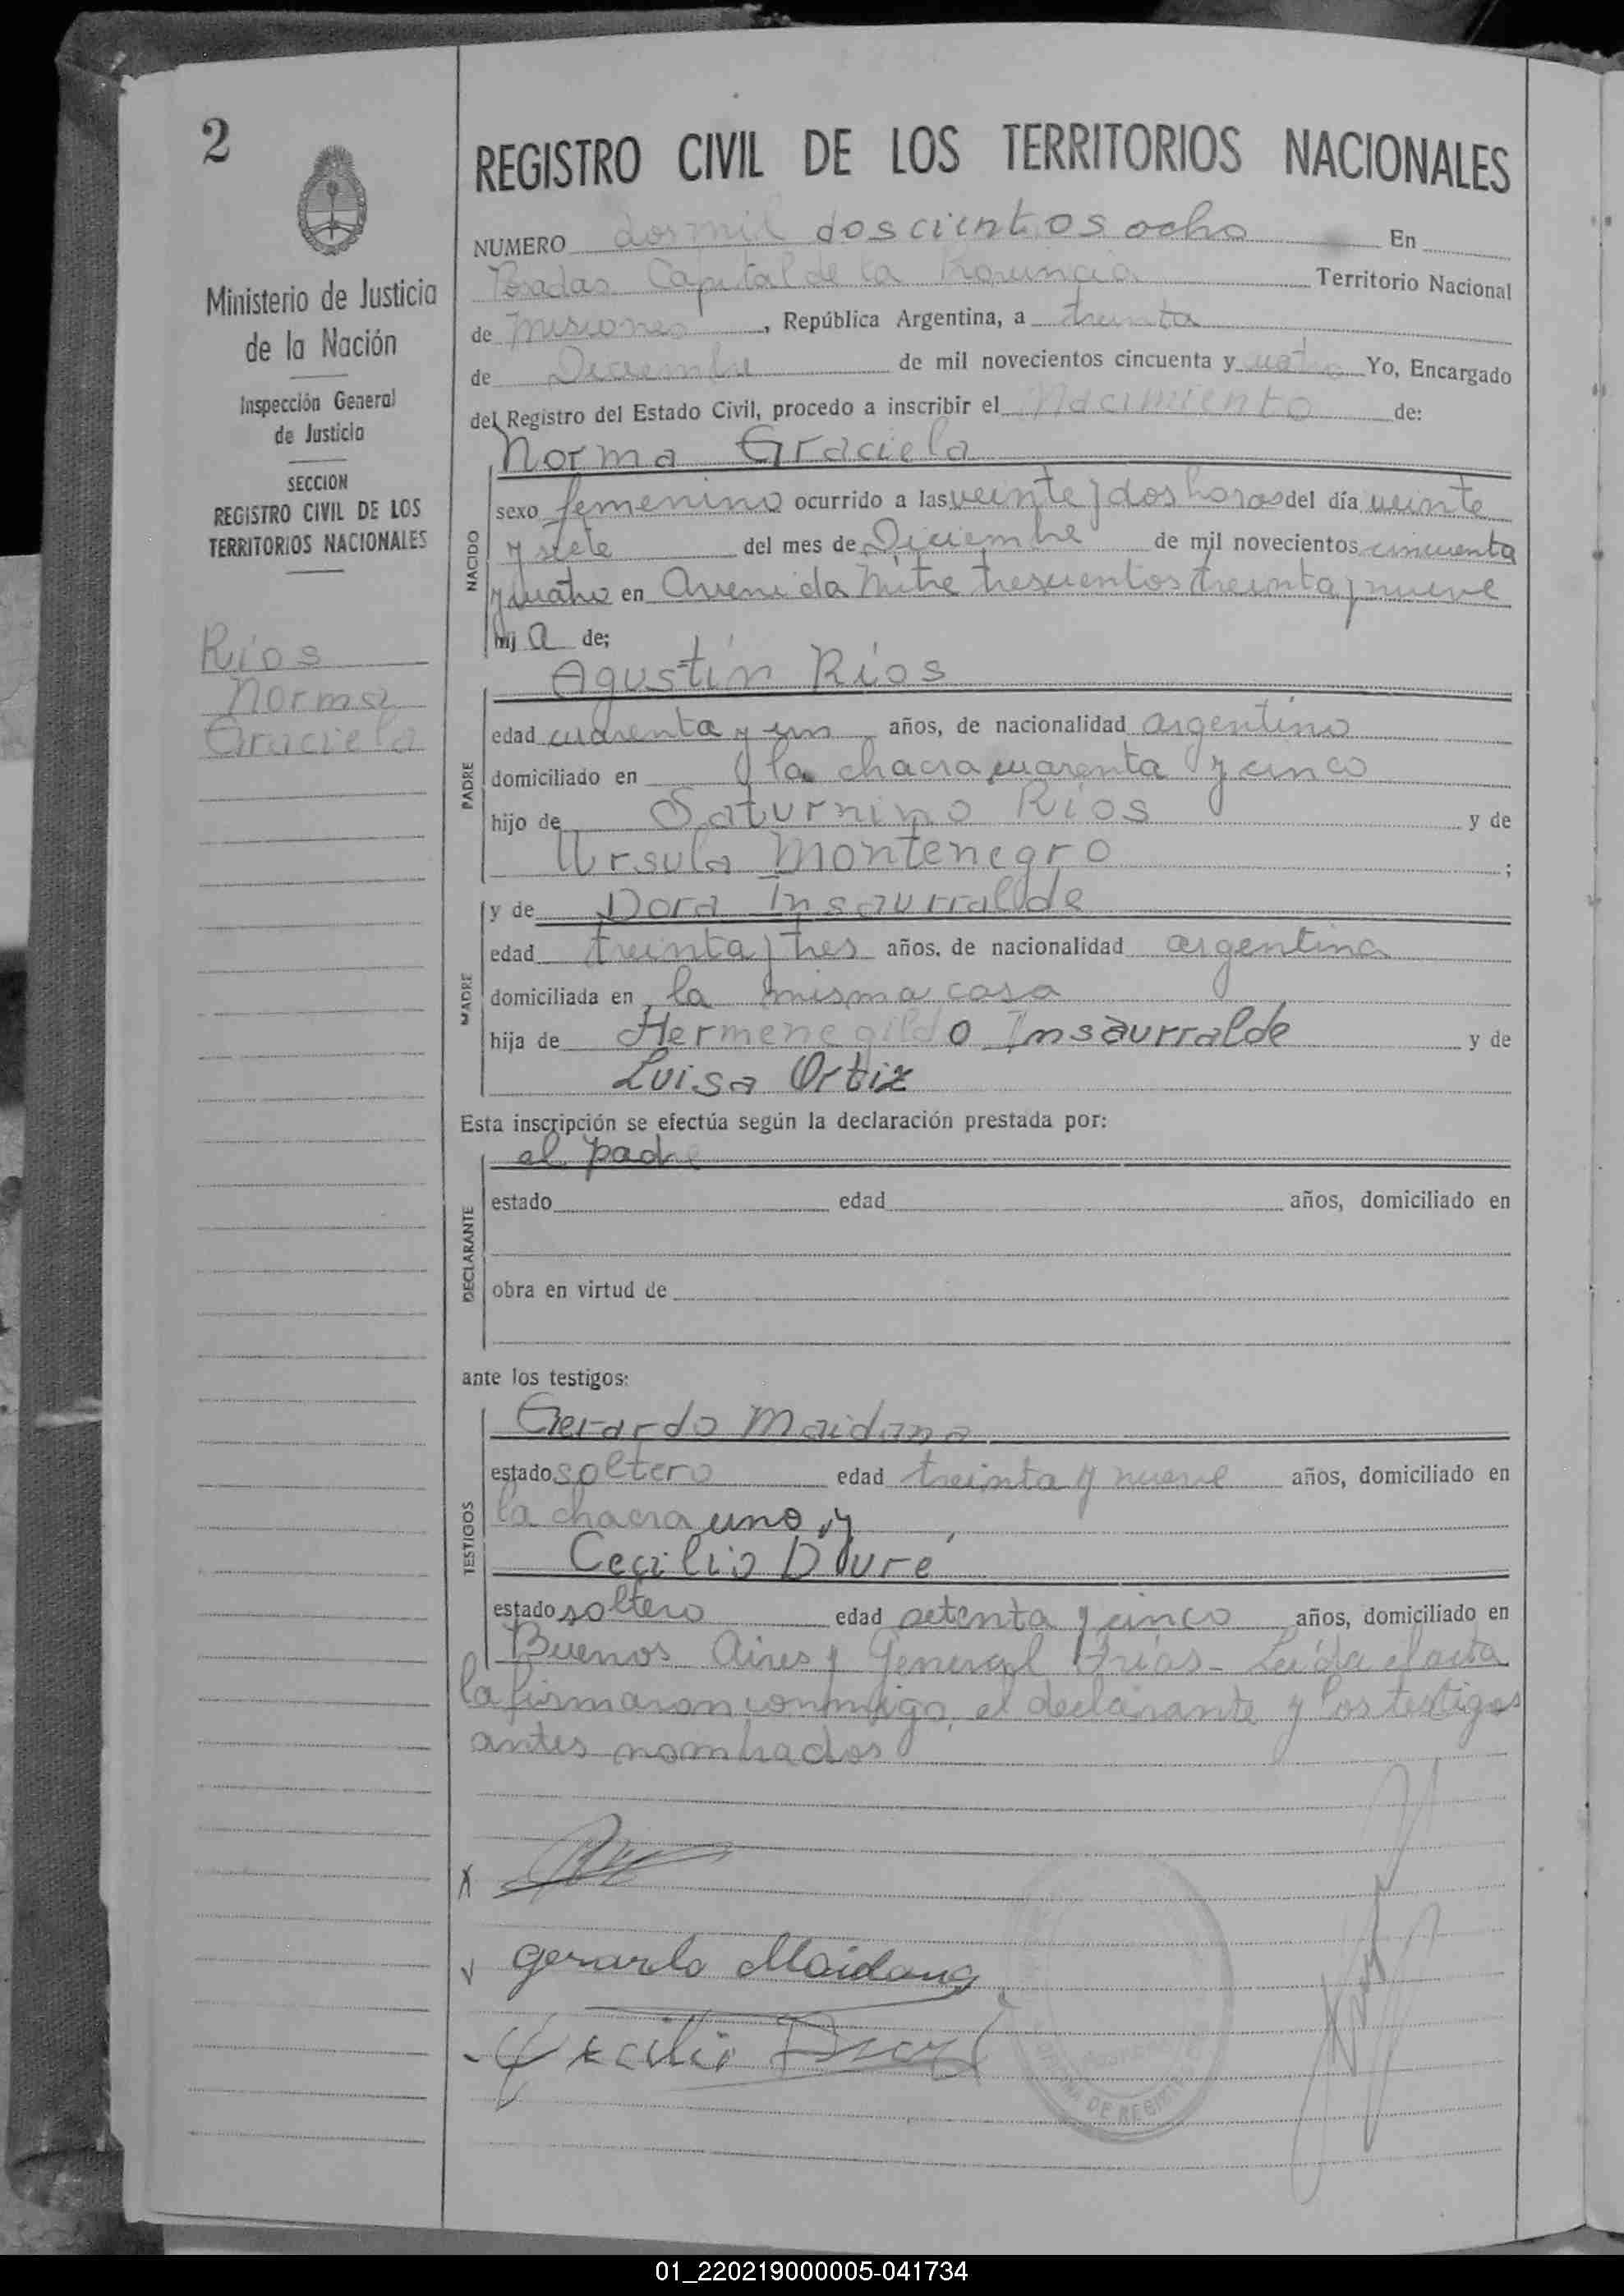 2
REGISTRO CIVIL DE LOS TERRITORIOS NACIONALES
Ministerio de Justicia
de la Nación
Inspección General
de Justicia
SECCION
REGISTRO CIVIL DE LOS
TERRITORIOS NACIONALES
Ríos
Norma
Graciela
NUMERO dos mil doscientos ocho En
Posadas Capital de la Provincia Territorio Nacional
de Misiones, República Argentina, a treinta
de Diciembre de mil novecientos cincuenta y cuatro Yo, Encargado
del Registro del Estado Civil, procedo a inscribir el Nacimiento de:
NACIDO
Norma Graciela
sexo femenino ocurrido a las veinte y dos horas del día veinte
y siete del mes de Diciembre de mil novecientos cincuenta
y cuatro en Avenida Mitre trescientos treinta y nueve
hij a de;
PADRE
Agustín Ríos
edad cuarenta y un años, de nacionalidad argentino
domiciliado en la chacra cuarenta y cinco
hijo de Saturnino Ríos y de
Ursula Montenegro ;
MADRE
y de Dora Insaurralde
edad treinta y tres años, de nacionalidad argentina
domiciliada en la misma casa
hija de Hermenegildo Insaurralde y de
Luisa Ortiz
Esta inscripción se efectúa según la declaración prestada por:
DECLARANTE
el padre
estado edad años, domiciliado en
obra en virtud de
ante los testigos:
TESTIGOS
Gerardo Maidana
estado soltero edad treinta y nueve años, domiciliado en
la chacra uno, y
Cecilio Duré
estado soltero edad setenta y cinco años, domiciliado en
Buenos Aires y General Frías - Leída el acta
la firmaron conmigo, el declarante y los testigos
antes nombrados
Gerardo Maidana
Cecilio Duré
DE REGIST
01_220219000005-041734